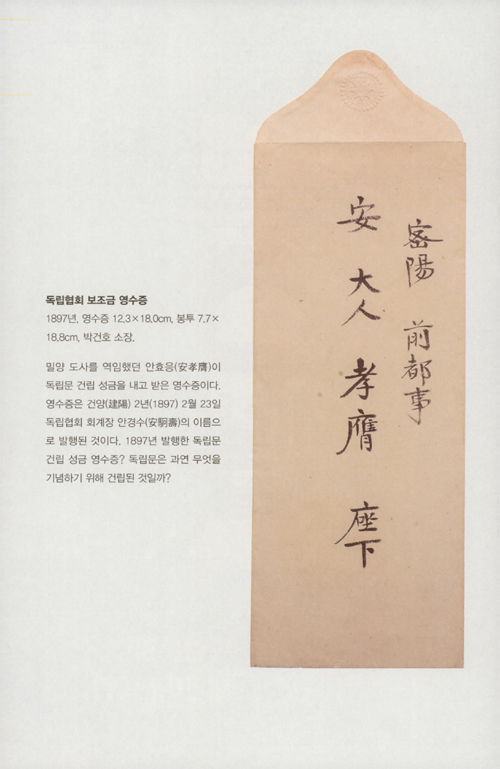 독립협회 보조금 영수증
1897년, 영수증 12.3×18.0cm, 봉투 7.7×
18.8cm, 박건호 소장.
밀양 도사를 역임했던 안효응(安孝膺)이
독립문 건립 성금을 내고 받은 영수증이다.
영수증은 건양(建陽) 2년(1897) 2월 23일
독립협회 회계장 안경수(安駉壽)의 이름으
로 발행된 것이다. 1897년 발행한 독립문
건립 성금 영수증? 독립문은 과연 무엇을
기념하기 위해 건립된 것일까?
密陽 前都事
安 大人 孝膺 座下